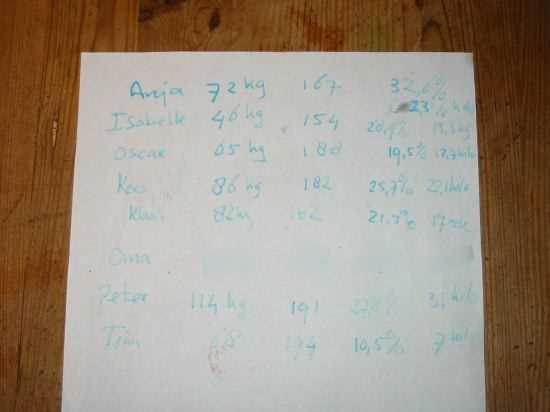 Anja 72 kg 167 32,6%
23% kilo
Isabelle 46 kg 154 28,9% 13,3 kg
Oscar 65 kg 188 19,5% 12,7 kilo
Kees 86 kg 182 25,7% 22,1 kilo
Klaas 82 kg 182 21.3%
Oma
Peter 114 kg 191 kilo
Tim 68 174 10,5% 7 kilo